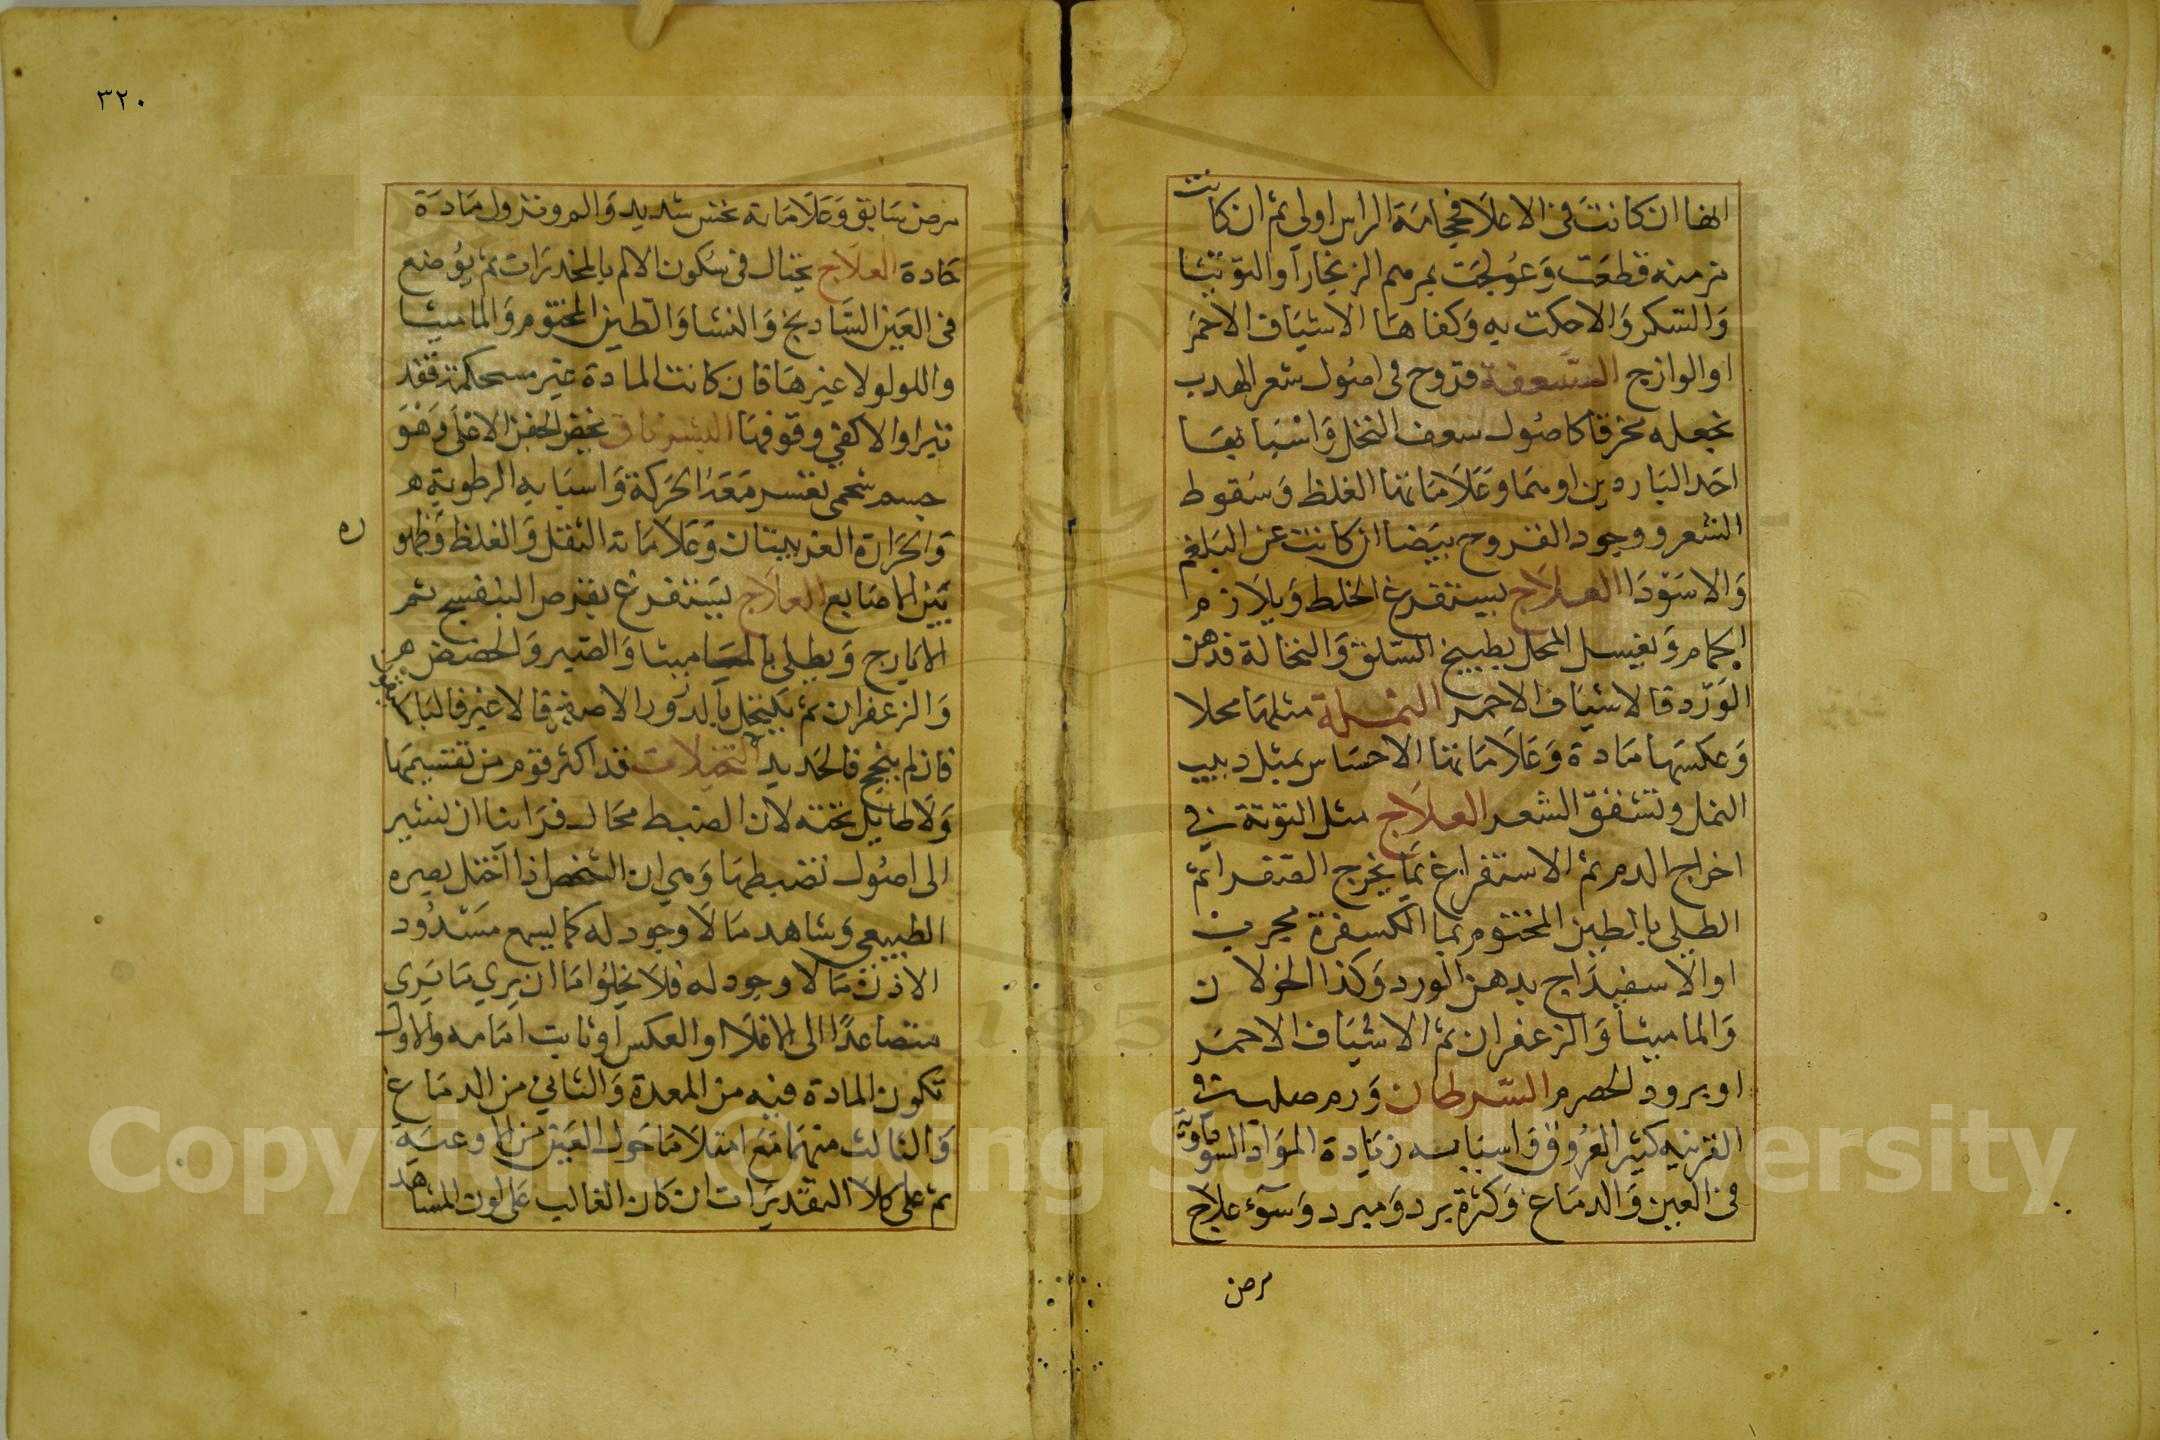 انها ان كانت في الاعلا فحجامة الراس اولي ثم ان كانت
مزمنه قطعت وعولجت بمرهم الزنجار او التوتيا
والسكر والا حكت به وكفاها الاشياف الاحمر
او الوازج السعفة قروح في اصول شعر الهدب
تجعله مخرقا كاصول سعف النخل واسبابها
احد الباردين او هما وعلاماتها الغلظ وسقوط
الشعر ووجود القروح بيضا ان كانت عن البلغم
والا سودا العلاج يستفرغ الخلط ويلازم
الحمام ويغسل المحل بطبيخ السلق والنخالة فدهن
الورد فالاشياف الاحمر النملة مثلها محلا
وعكسها مادة وعلاماتها الاحساس بمثل دبيب
النمل وتشقق الشعر العلاج مثل التوتة في
اخراج الدم ثم الاستفراغ بما يخرج الصفرا ثم
الطلي بالطين المختوم بما الكسفرة مجرب
او الاسفيداج بدهن الورد وكذا الخولان
والماميثا والزعفران ثم الاشياف الاحمر
او برود الحصرم السرطان ورم صلب في
القرنيه كثير العروق واسبابه زيادة المواد السوداوية
في العين والدماغ وكثرة برد ومبرد وسوء علاج
مرض
٣٢٠
مرض سابق وعلاماته نخس شديد والم ونزول مادة
حادة العلاج يحتال في سكون الالم بالمخدرات ثم يوضع
في العين الشادنج والنشا والطين المختوم والماميثا
واللولو لا غيرها فان كانت المادة غير مستحكمة فقد
تبرا والا كفي وقوفها الشرناق بخص الجفن الاعلى وهو
جسم شحمي تعسر معه الحركة واسبابه الرطوبة
والحرارة الغريبتان وعلاماته الثقل والغلظ وظهو
ره
بين الاصابع العلاج يستفرغ بقرص البنفسج ثم
الايارج ويطلى بالماميثا والصبر والحضض
والزعفران ثم يكتحل بالدرور الاصفر
فان لم ينجح فالحديد التخيلات قد اكثر قوم من تقسيمها
ولا طايل تحته لان الضبط محال فراينا ان نشير
الى اصول نضبطها وهي ان الشخص اذا اختل بصره
الطبيعي وشاهد ما لا وجود له كما يسمع مسدود
الاذن ما لا وجود له فلا يخلوا اما ان يري ما يري
متصاعدا الى الاعلا او العكس او ثابت امامه والاول
تكون المادة فيه من المعدة والثاني من الدماغ
والثالث منهما مع امتلا ما حول العين من الاوعية
ثم على كلا التقديرات ان كان الغالب على لون المشاهد